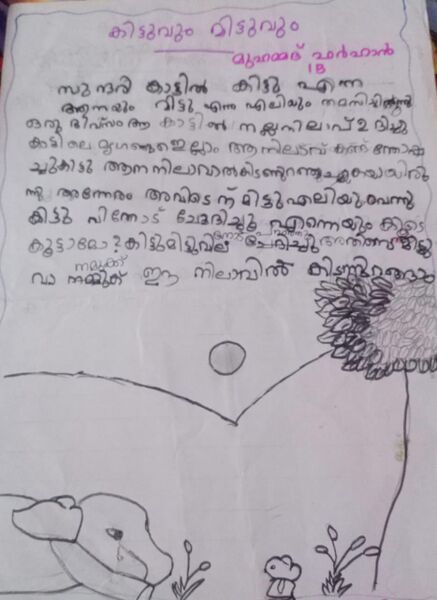 കിട്ടുവും മിട്ടുവും
മുഹമ്മദ് ഫർഹാൻ
1B
സുന്ദരൻ കാട്ടിൽ കിട്ടു എന്ന
ആനയും മിട്ടു എന്ന എലിയും താമസിച്ചിരുന്നു
ഒരു ദിവസം ആ കാട്ടിൽ നല്ല നിലാവ് ഉദിച്ചു
കാട്ടിലെ മൃഗങ്ങളെല്ലാം ആ നിലാവ് കണ്ട്
കിട്ടു ആന നിലാവിൽ കിടന്നുറങ്ങുകയായിരു
ന്നു അന്നേരം അവിടെ മിട്ടു എലിയും വന്നു
കിട്ടു വിനോട് ചോദിച്ചു എന്നെയും കൂടെ
കൂട്ടാമോ? കിട്ടു മിട്ടുവി ചോദിച്ചു
വാ നമുക്ക് ഈ നിലാവിൽ കിടന്നുറങ്ങാം